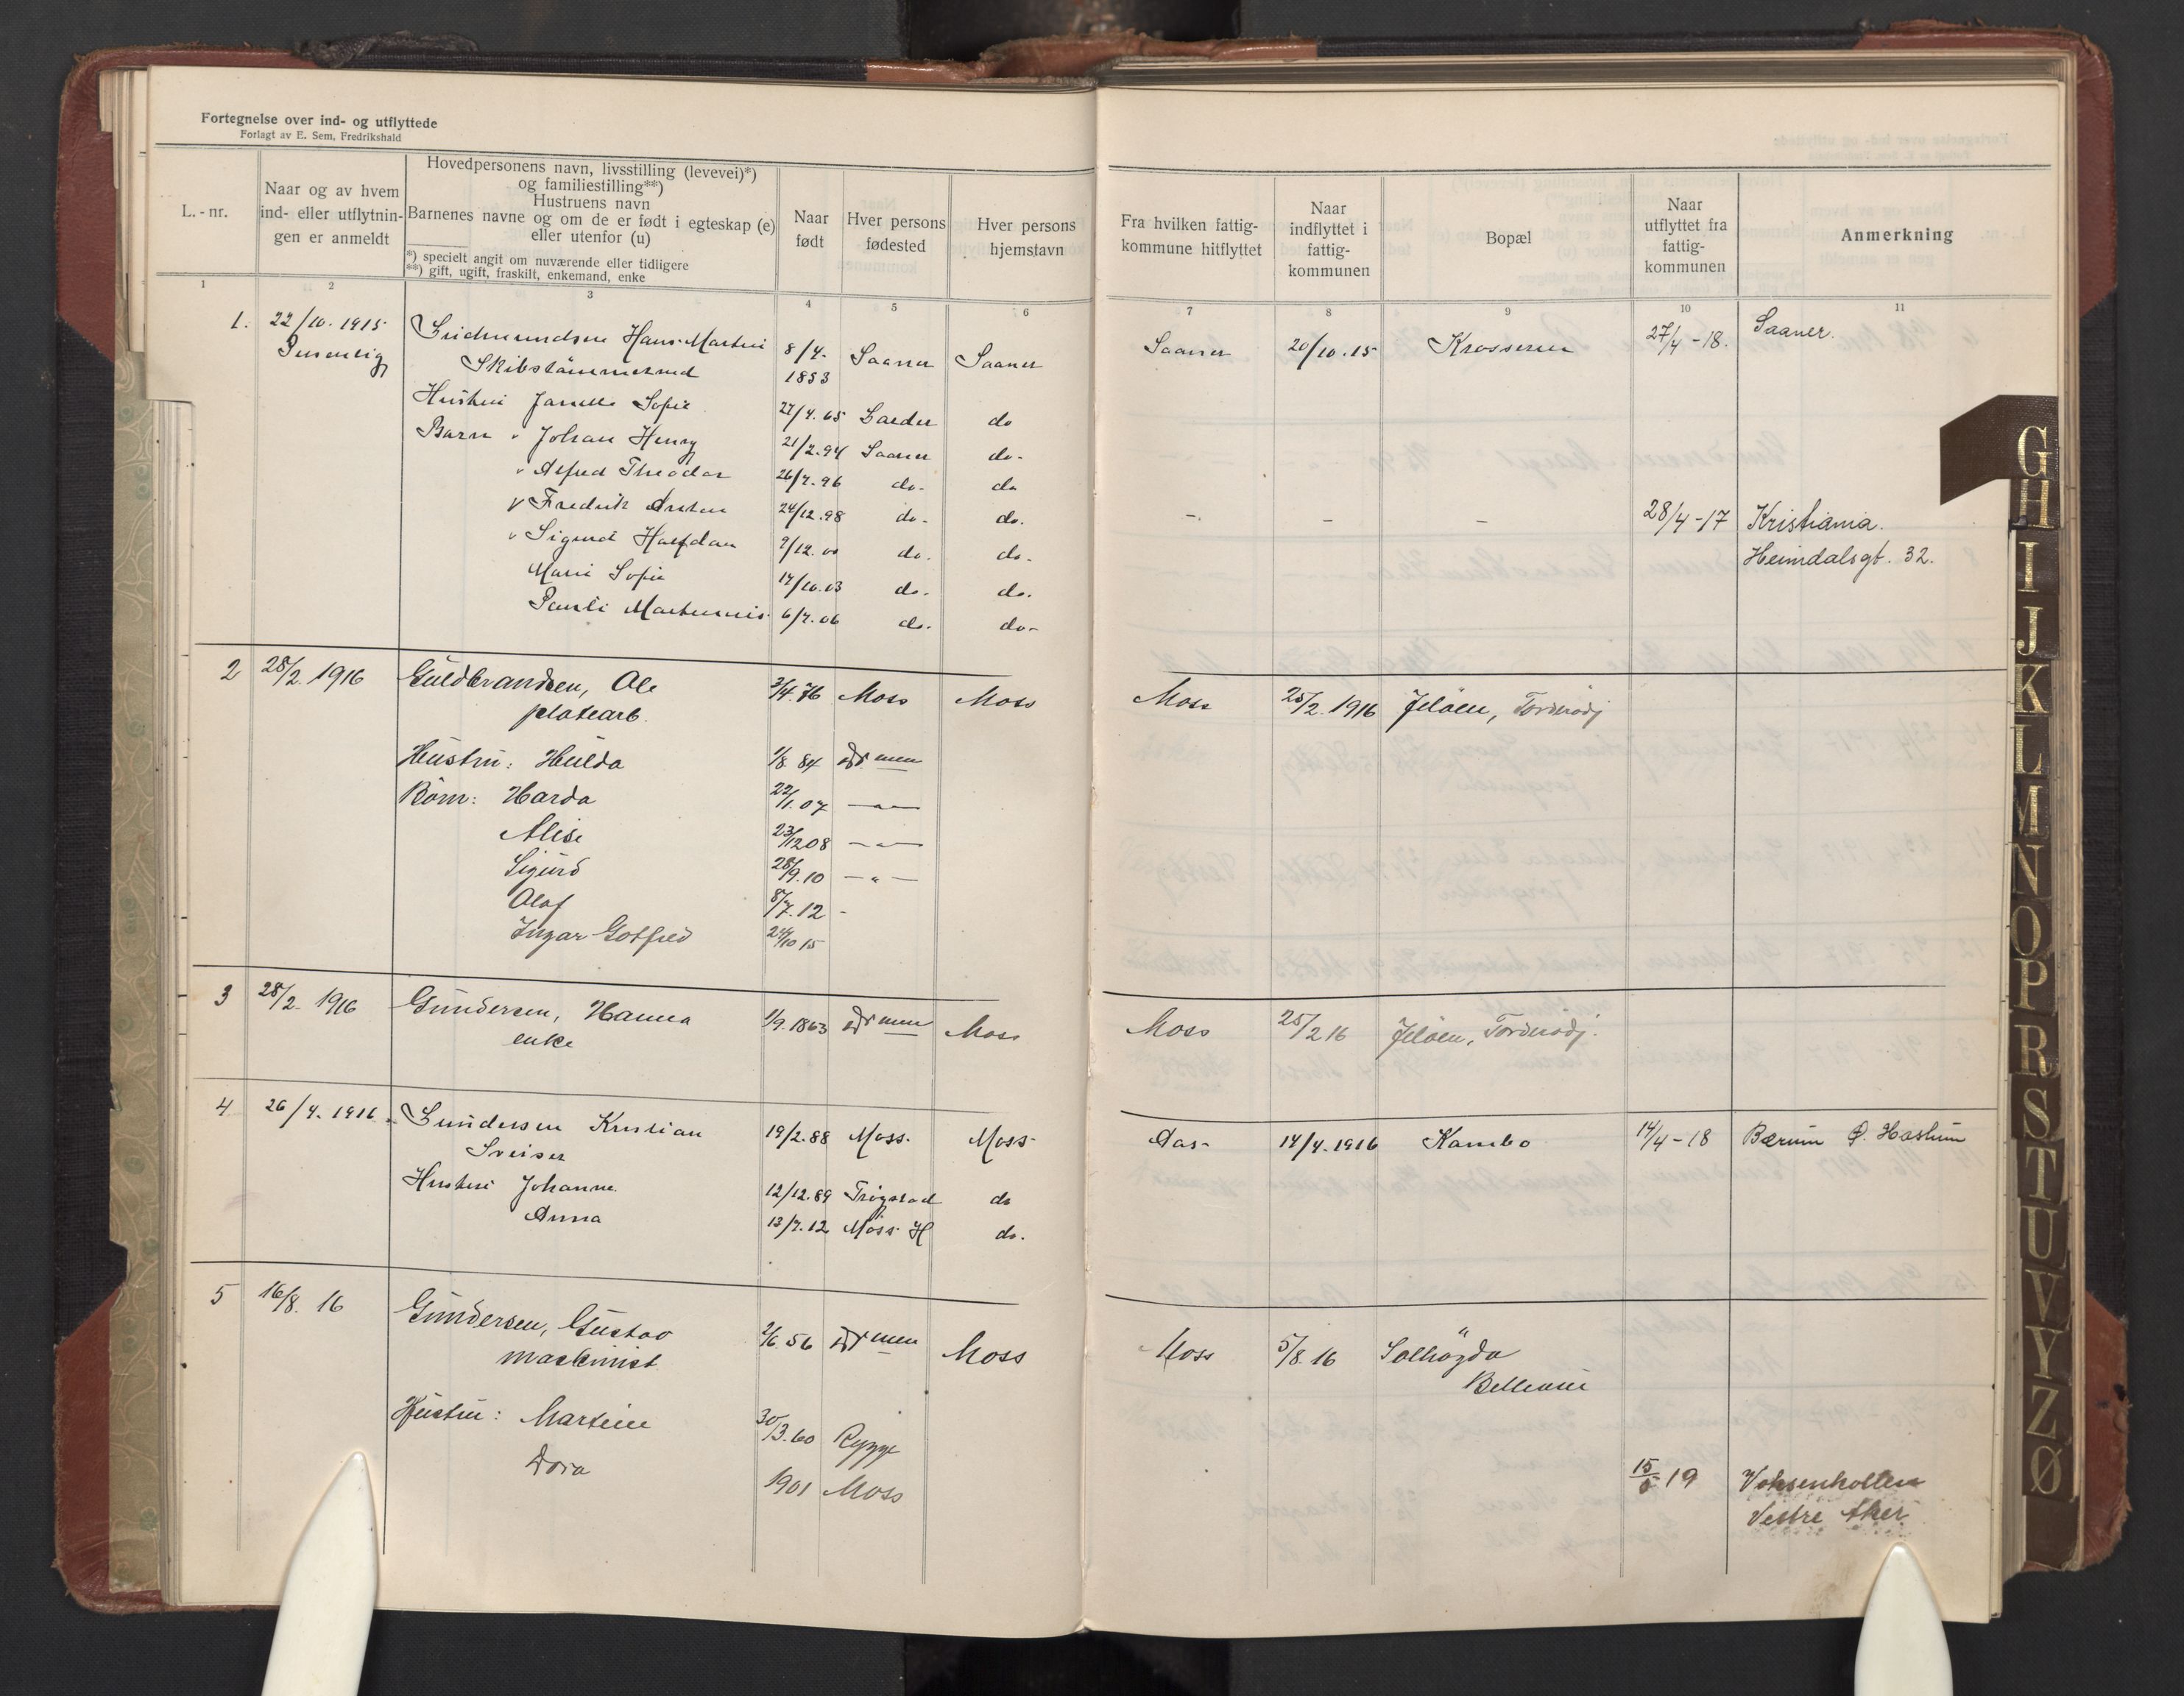 Fortegnelse over ind- og utflyttede
Forlagt av E. Sem, Fredrikshald
L.-nr.
Naar og av hvem ind- eller utflytnin- gen er anmeldt
Hovedpersonens navn, livsstilling (levevei)*)
og familiestilling**)
Hustruens navn
Barnenes navne og om de er født i egteskap (e)
eller utenfor (u)
*) specielt angit om nuværende eller tidligere
**) gift, ugift, fraskilt, enkemand, enke
Naar født
Hver persons fødested
Hver persons hjemstavn
Fra hvilken fattig- kommune hitflyttet
Naar indflyttet i fattig- kommunen
Bopæl
Naar utflyttet fra fattig- kommunen
Anmerkning
1 2 3 4 5 6 7 8 9 10 11
1. 22/10. 1915 Gudmundsen Hans Martin 8/4. 1853 Saaner Saaner Saaner 20/10.15 Krosseren 27/4-18. Saaner.
Personlig Skibstømmermd
Hustru Sofie 27/4.65 do
Barn " Johan Henry 21/2.94 Saaner do.
" Alfred Theodor 26/7.96 do. do
v Fredrik 24/12.98 do. do. - - - 28/4-17 Kristiania.
" Sigurd Halfdan 9/12.00 do. do. Heimdalsgt. 32.
Marie Sofie 14/10.03 do. do.
Pauli 6/7.06 do. do-
2 28/2. 1916 Guldbrandsen, Ole 3/4.76 Moss Moss Moss 25/2. 1916 Jeløen,
platearb.
Hustru: Hulda 1/8. 84
Børn: Harda 22/1.07 —"—
Alise 23/12 08 —"—
Sigurd 28/9.10 —"—
Olaf 8/7.12 -
Ingar Gotfred 24/10 15
3 28/2. 1916 Gundersen, Hanna 1/9.1863 Moss Moss 25/2 16 Jeløen,
enke
4 26/4. 1916. Gundersen Kristian 19/2.88 Moss. Moss. Aas- 14/4.1916 Kambo 14/4-18 Bærum P. Haslum
Sveiser
Hustru Johanne 12/12.89 Trøgstad do
Anna 13/7.12 Moss H do.
5 16/8. 16 Gundersen, Gustav 2/6 56 Moss Moss 5/8. 16 Solhøgda
maskinist Bellevue
Hustru: Martine 30/3.60 Rygge
Dora 1901 Moss 15/5 19 Voksenkollen
Vestre Aker
G
H
I
J
K
L
M
N
O
P
R
S
T
U
V
Y
Z
Ø